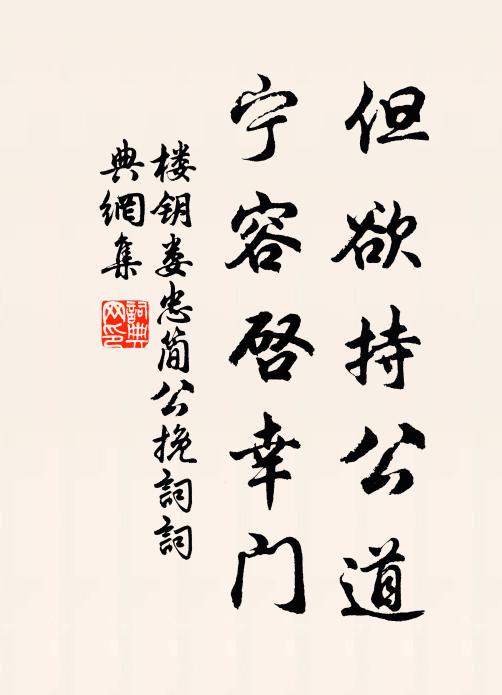 但欲持公道
宁容启幸门
楼钥娄忠简公挽词詞
典網集
詞典網印